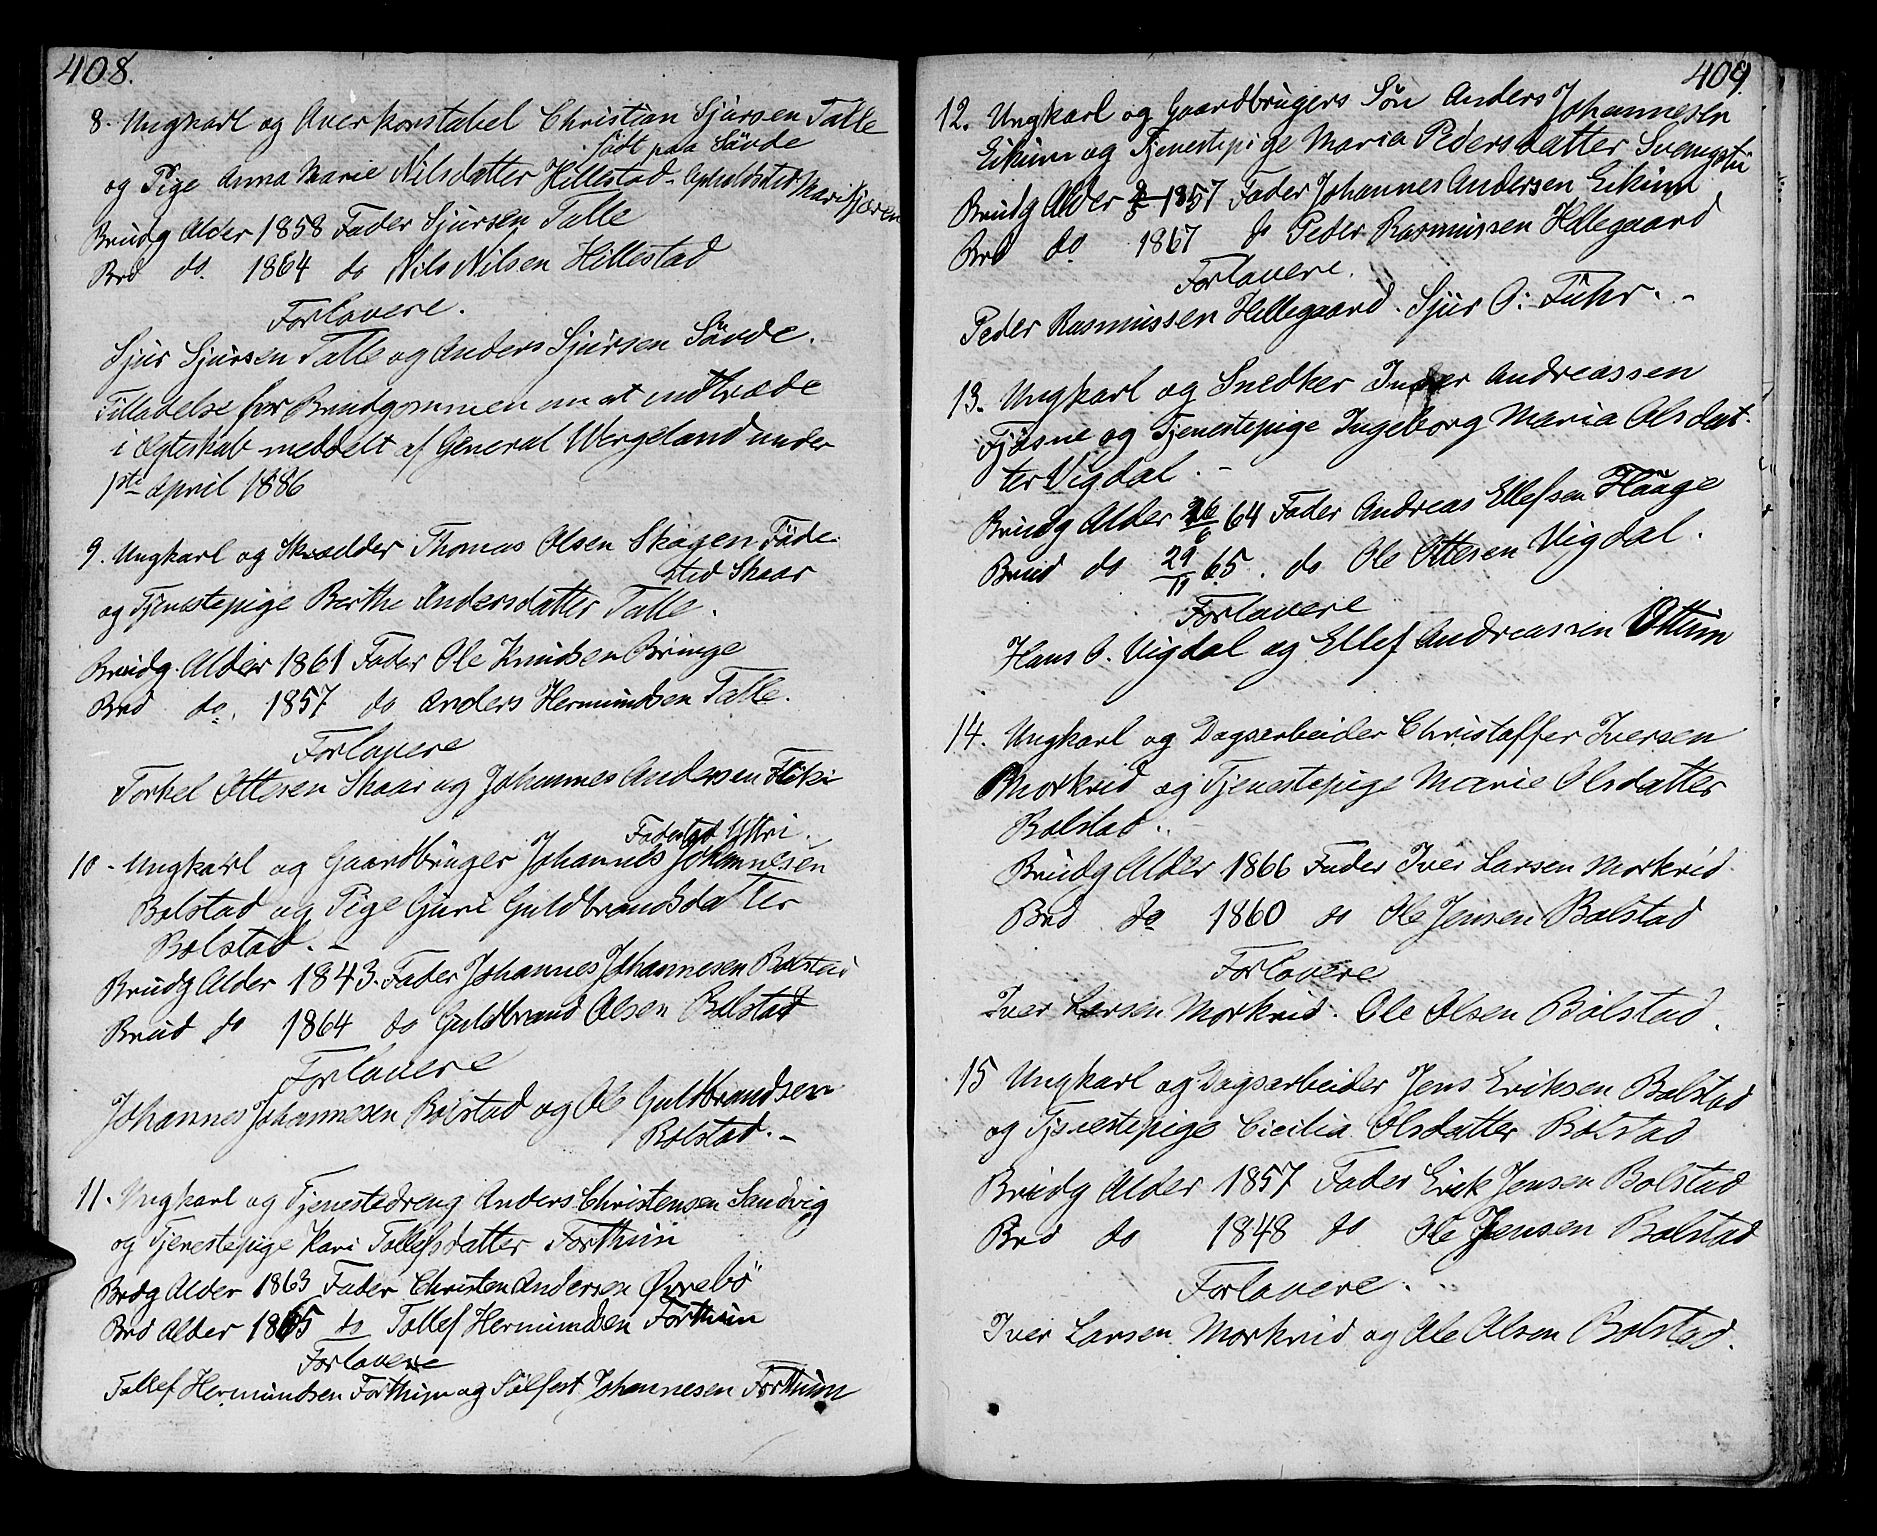 408.
8. Ungkarl og Overkonstabel Christian Sjursen Talle
født paa Søvde
og Pige Anna Marie Nilsdatter Hillestad. Opholdssted Marifjøren
Brudg Alder 1858 Fader Sjursen Talle
Brd do. 1864 do Nils Nilsen Hillestad
Forlovere.
Sjur Sjursen Talle og Anders Sjursen Søvde.
Tilladelse for Brudgommen om at indtræde
i Ægteskab meddelt af General Wergeland under
1ste April 1886
9. Ungkarl og Skrædder Thomas Olsen Skagen Føde
sted Skaar
og Tjenestepige Berthe Andersdatter Talle.
Brudg. Alder 1861 Fader Ole Knudsen Bringe
Brd do. 1857 do Anders Hermundsen Talle.
Forlovere
Torkel Ottesen Skaar og Johannes Andersen
Fødested Yttri.
10. Ungkarl og Gaardbruger Johannes Johannesen
Bolstad og Pige Guri Guldbrandsdatter
Bolstad. -
Brudg Alder 1843. Fader Johannes Johannesen Bolstad
Brud do 1864 do Guldbrand Olsen Bolstad
Forlovere
Johannes Johannesen Bolstad og Ole Guldbrandsen
Bolstad. -
11. Ungkarl og Tjenestedreng Anders Christensen Sandvig
og Tjenestepige Kari Tollefsdatter Forthun
Brdg Alder 1863 Fader Christen Andersen Øvrebø
Brd Alder 1865 do Tollef Hermundsen Forthun
Forlovere
Tollef Hermundsen Forthun og Sølfest Johannesen Forthun
409.
12. Ungkarl og Gaardbrugers Søn Anders Johannesen
Eikum og Tjenestepige Maria Pedersdatter
Brudg Alder 1857 Fader Johannes Andersen Eikum
Brd do 1867 do Peder Rasmussen Hellegaard
Forlovere.
Peder Rasmussen Hellegaard. Sjur O: Fuhr. -
13. Ungkarl og Snedker Iver Andreassen
Fjøsne og Tjenestepige Ingeborg Maria Olsdat-
ter Vigdal. -
Brudg Alder 26/6 64 Fader Andreas Ellefsen Hauge
Brud do 29/11 65. do Ole Ottesen Vigdal.
Forlovere
Hans O. Vigdal og Ellef Andreassen Ottum
14. Ungkarl og Dagsarbeider Christoffer Iversen
Morkrid og Tjenestepige Marie Olsdatter
Bolstad.
Brudg Alder 1866 Fader Iver Larsen Morkrid
Brd do 1860 do Ole Jensen Bolstad
Forlovere
Iver Larsen Morkrid. Ole Olsen Bolstad.
15 Ungkarl og Dagsarbeider Jens Eriksen Bolstad
og Tjenestepige Cicilia Olsdatter Bolstad
Brudg Alder 1857 Fader Erik Jensen Bolstad
Brd do 1848 do Ole Jensen Bolstad
Forlovere.
Iver Larsen Morkrid og Ole Olsen Bolstad.